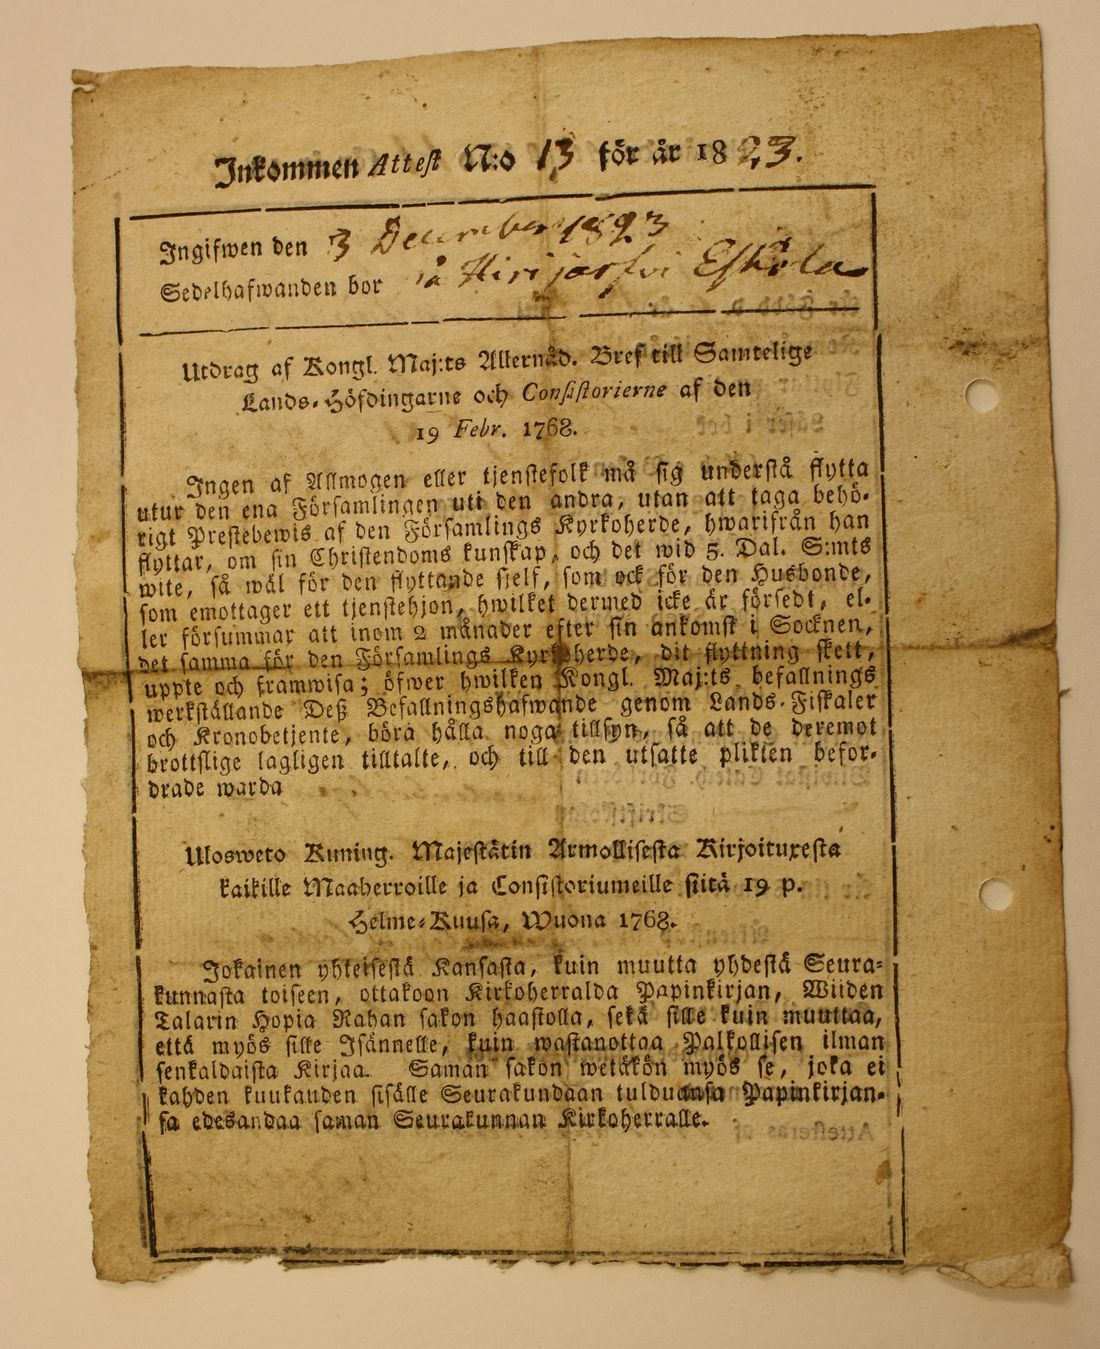 Inkommen Attest N:o 13 för år 1823.
Ingifwen den 3 December 1823
Sedelhafwanden bor på Hirijärfvi Eskola
Utdrag af Kongl. Maj:ts Allernåd. Bref till Samtelige
Lands-Höfdingarne och Consistorierne af den
19 Febr. 1768.
Ingen af Allmogen eller tjenstefolk må sig understå flytta
utur den ena Församlingen uti den andra, utan att taga behö-
rigt Prestebewis af den Församlings Kyrkoherde, hwarifrån han
flyttar, om sin Christendoms kunskap, och det wid 5. Dal. S:mts
wite, så wäl för den flyttande sjelf, som ock för den Husbonde,
som emottager ett tjenstehjon, hwilket dermed icke är försedt, el-
ler försummar att inom 2 månader efter sin ankomst i Socknen,
det samma för den Församlings Kyrkoherde, dit flyttning skett,
uppte och framwisa; öfwer hwilken Kongl. Maj:ts befallnings
werkställande Deß Befallningshafwande genom Lands-Fiskaler
och Kronobetjente, böra hålla noga tillsyn, så att de deremot
brottslige lagligen tilltalte, och till den utsatte plikten befor-
drade warda
Ulosweto Kuning. Majestätin Armollisesta Kirjoituxesta
kaikille Maaherroille ja Consistoriumeille siitä 19 p.
Helme-Kuusa, Wuona 1768.
Jokainen yhteisestä Kansasta, kuin muutta yhdestä Seura-
kunnasta toiseen, ottakoon Kirkoherralda Papinkirjan, Wiiden
Talarin Hopia Rahan sakon haastolla, sekä sille kuin muuttaa,
että myös sille Isännelle, kuin wastanottaa Palkollisen ilman
senkaldaista Kirjaa. Saman sakon wetäkön myös se, joka ei
kahden kuukauden sisälle Seurakundaan tulduansa Papinkirjan-
sa edesandaa saman Seurakunnan Kirkoherralle.